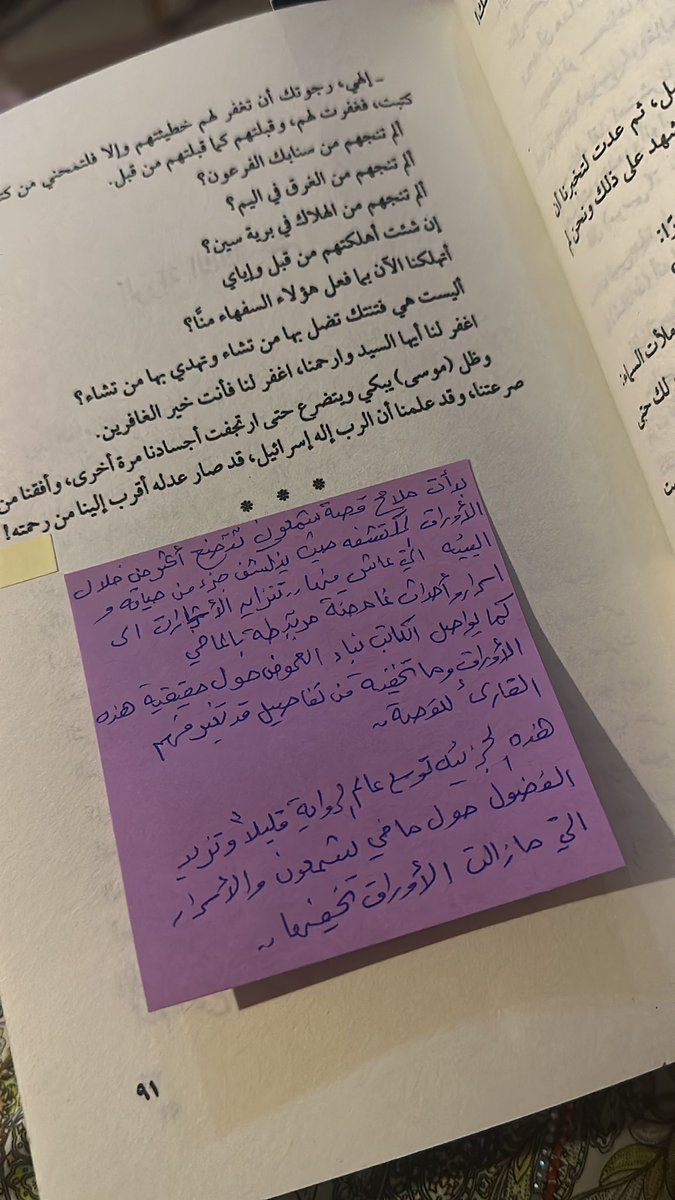 ـ إلهي، رجوتك أن تغفر لهم خطيئتهم وإلا فلتمحني من
كتبت، فغفرت لهم، وقبلتهم كما قبلتهم من قبل.
ألم تنجهم من سنابك الفرعون؟
ألم تنجهم من الغرق في اليم؟
ألم تنجهم من الهلاك في برية سين؟
إن شئت أهلكتهم من قبل وإياي
أتهلكنا الآن بما فعل هؤلاء السفهاء منَّا؟
أليست هي فتنتك تضل بها من تشاء وتهدي بها من تشاء؟
اغفر لنا أيها السيد وارحمنا، اغفر لنا فأنت خير الغافرين.
وظل (موسى) يبكي ويتضرع حتى ارتجفت أجسادنا مرة أخرى، وأفقنا من
صرعتنا، وقد علمنا أن الرب إله إسرائيل، قد صار عدله أقرب إلينا من رحمته!
* * *
بدأت ملامح قصة شمعون تتوضح أكثر من خلال
الأوراق المكتشفه حيث ينكشف جزء من حياته و
البيئه التي عاش فيها.. تتزايد الأشارات الى
اسرار وأحداث غامضة مرتبطة بالماضي
كما يواصل الكاتب بناء الغموض حول حقيقية هذه
الأوراق وما تخفيه من تفاصيل قد تغير فهم
القارئ للقصة..
هذه الجزئيه توسع عالم الرواية قليلاً وتزيد
الفضول حول ماضي شمعون والأسرار
التي مازالت الأوراق تخفيها..
٩١
ل، ثم عدت لتخبرنا أن
شهد على ذلك ونحن لم
ملأت السماء
لك حتى